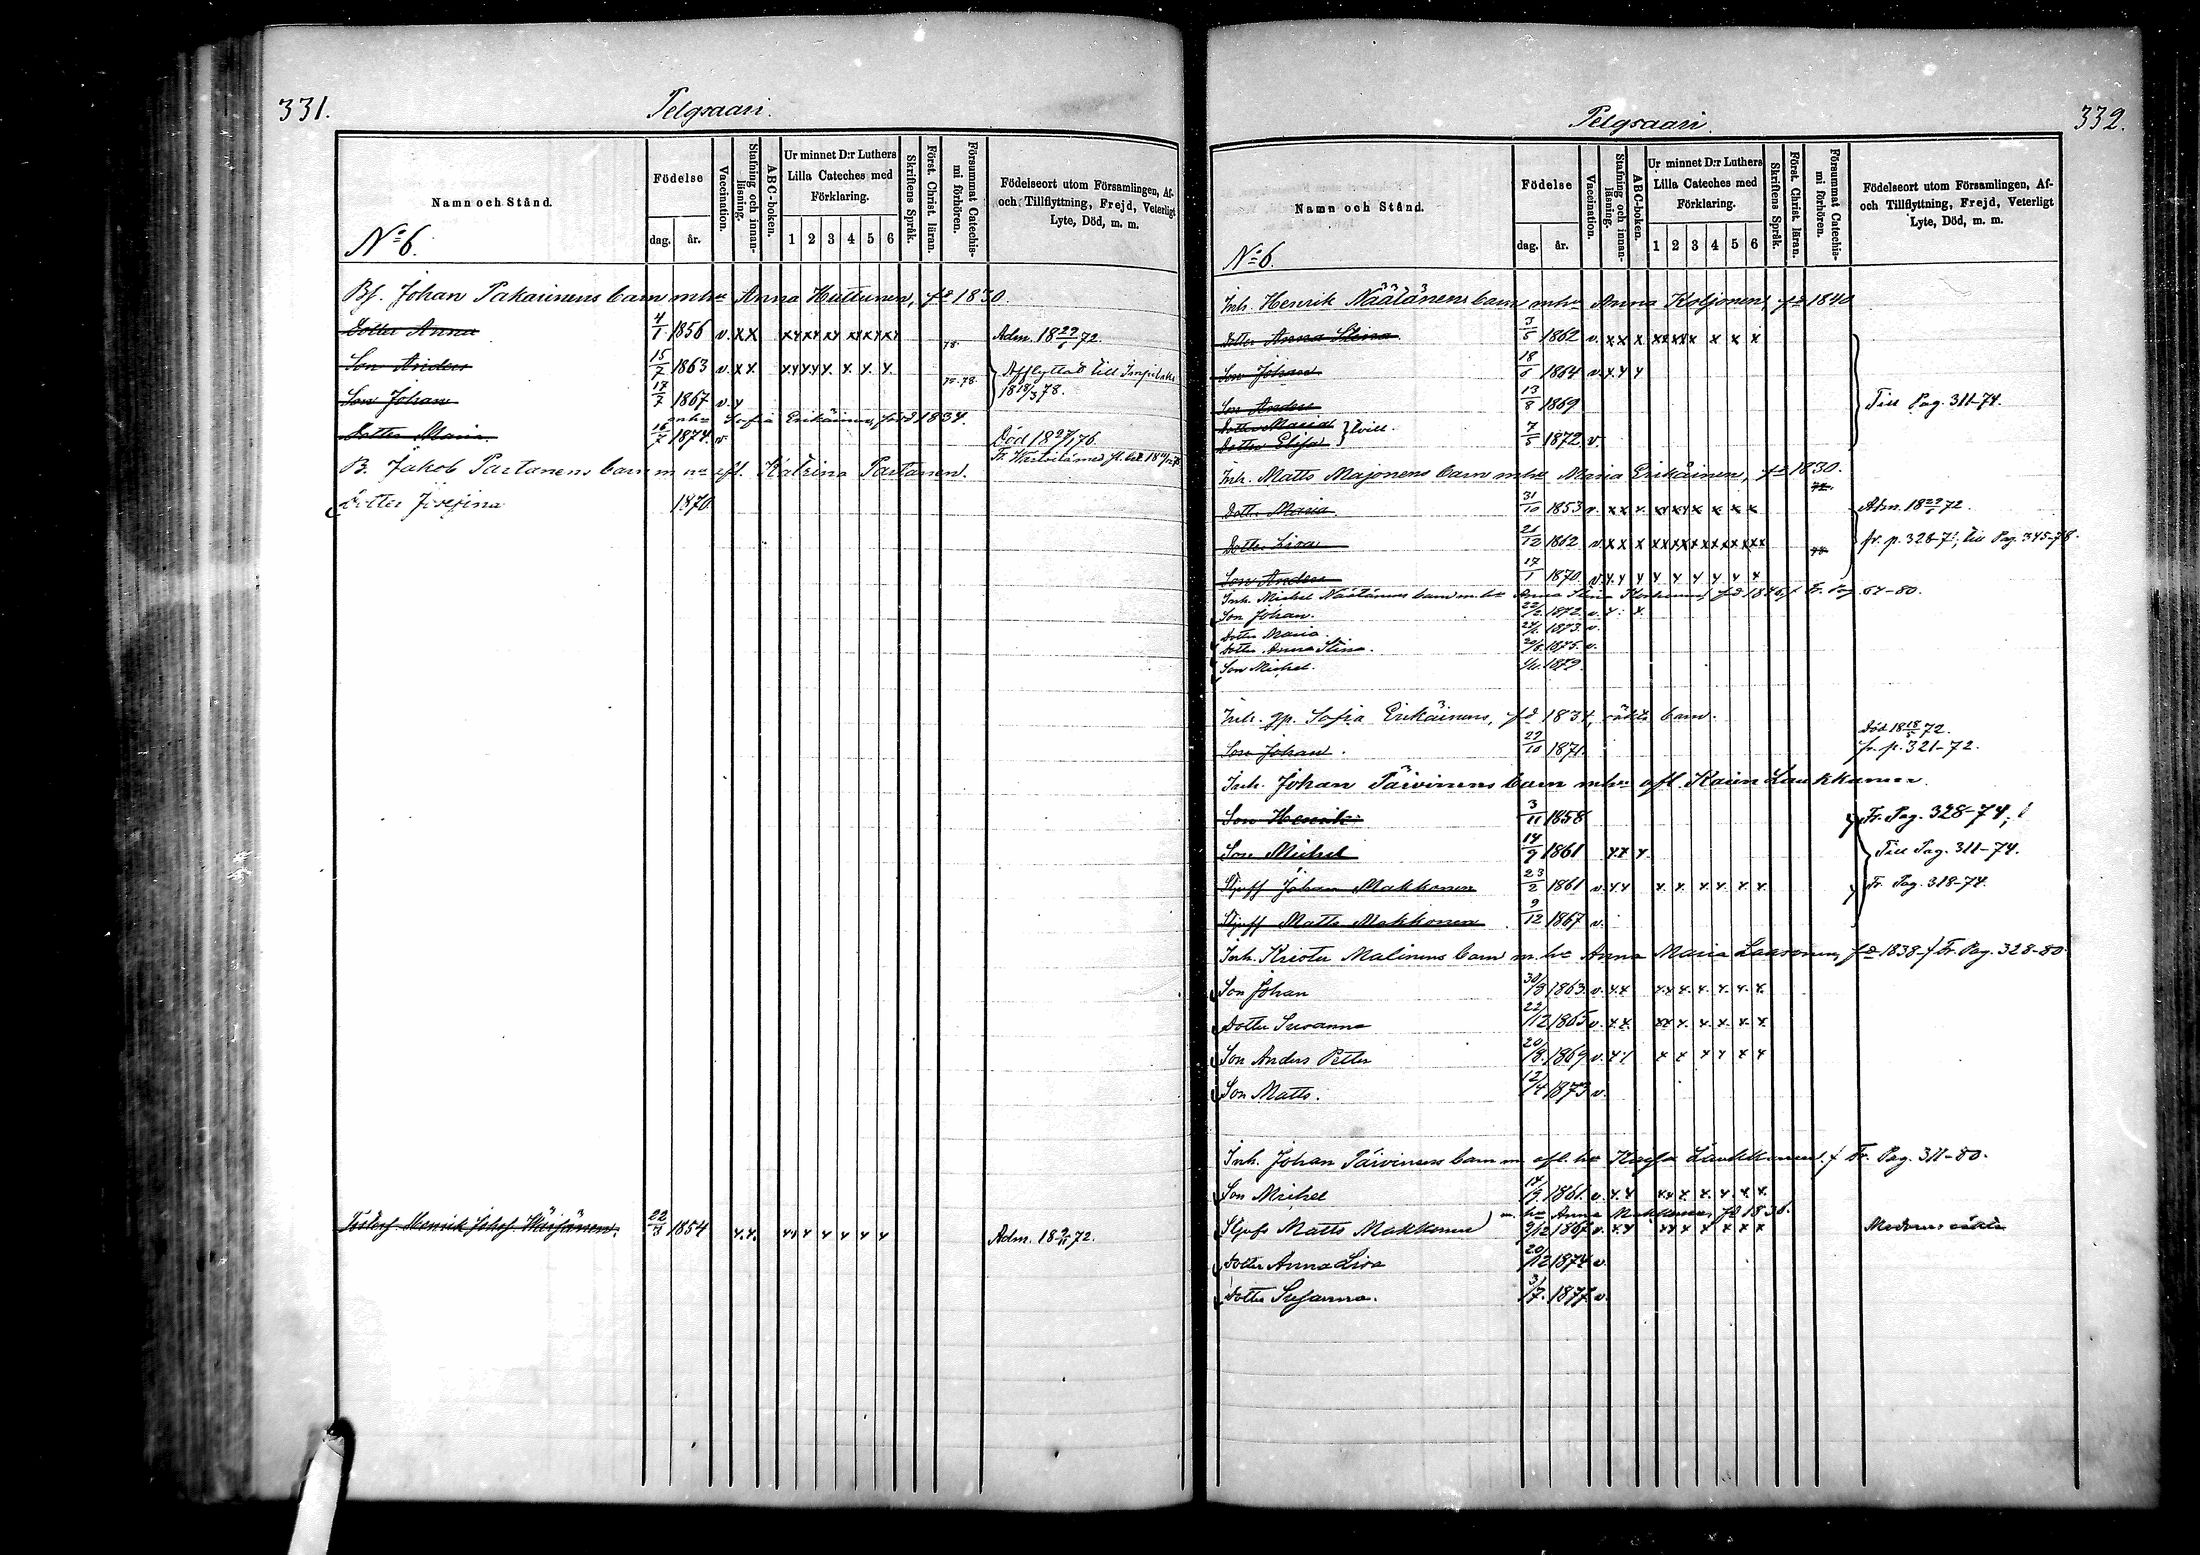 331.
Pelgsaari.
Namn och Stånd.
Födelse
dag. år.
Vaccination.
Stafning och innanläsning.
ABC-boken.
Ur minnet D:r Luthers
Lilla Cateches med
Förklaring.
1 2 3 4 5 6
Skriftens Språk.
Först. Christ. läran.
Försummat Catechismi förhören.
Födelseort utom Församlingen, Af-
och Tillflyttning, Frejd, Veterligt
Lyte, Död, m. m.
No 6.
Bf. Johan Pakarinens barn m hu Anna Huttunen, fd 1830.
Dotter Anna 4/1 1856 v. x x x x x x x x x x x x x x Adm. 18 29/6 72.
Son Anders 15/7 1863 v. x x x x x x x x x x 78. Afflyttad till Impilaks
Son Johan 17/7 1867 v. x 77-78. 18 18/3 78.
m hu Sofia Erikäinen, född 1834.
Dotter Maria 16/7 1874 v. Död 18 27/1 76.
B. Jakob Partanens barn m hu afl. Katrina Partanen.
Dotter Josefina 1870
Henrik Johsf. 22/3 1854 x. x. x x x x x x x Adm. 18 9/11 72.
332.
Pelgsaari.
Namn och Stånd.
Födelse
dag. år.
Vaccination.
Stafning och innanläsning.
ABC-boken.
Ur minnet D:r Luthers
Lilla Cateches med
Förklaring.
1 2 3 4 5 6
Skriftens Språk.
Först. Christ. läran.
Försummat Catechismi förhören.
Födelseort utom Församlingen, Af-
och Tillflyttning, Frejd, Veterligt
Lyte, Död, m. m.
No 6.
Inh. Henrik Näätänens barn m hu Anna Koljonen, fd 1840
Dotter Anna Stina. 3/5 1862 v. x x x x x x x x x x
Son Johan 18/6 1864 v. x x x
Son Anders 13/8 1869 Till Pag. 311-74.
Dotter Maria } tvill.
Dotter Elisa 7/5 1872 v.
Inh. Matts Majonens barn m hu Maria Erikäinen, fd 1830.
Dotter Maria 31/10 1853 v. x x x x x x x x x x x 72. Adm. 18 29/6 72.
Dotter Lisa 21/12 1862 v. x x x x x x x x x x x x x x 78. fr. p. 328-71, till Pag. 345-78.
Son Anders 17/1 1870 v. x x x x x x x x x
Inh. Michel Näätänens barn m. hu Anna Stina fd 1846, Fr. Pag. 64-80.
Son Johan. 22/2 1872 v. x. x.
Dotter Maria. 1873 v.
Dotter Anna Stina. 1875 v.
Son Michel. 1879.
Inh. gp. Sofia Erikäinens, fd 1834, oäkta barn.
Son Johan. 29/10 1871 Död 18 18/5 72.
fr. p. 321-72.
Inh. Johan Päivinens barn m hu afl. Karin Laukkanen.
Son Henrik 3/11 1858 Fr. Pag. 328-74;
Son Michel 14/9 1861 x x x Till Pag. 311-74.
Styfs Johan Makkonen 23/2 1861 v. x x x x x x x x Fr. Pag. 318-74.
Styfs Matts Makkonen 9/12 1867 v.
Inh. Krister Malinens barn m. hu Anna Maria Laasonen, fd 1838. Fr. Pag. 328-80.
Son Johan 30/3 1863 v. x x x x x x x x x
Dotter Susanna 22/12 1865 v. x x x x x x x x x
Son Anders Petter 20/8 1869 v. x x x x x x x x
Son Matts. 12/4 1873 v.
Inh. Johan Päivinens barn m afl. hu Kaisa Laukkanen. Fr. Pag. 311-80.
Son Michel 14/9 1861 v. x x x x x x x x x
m. hu Anna Makkonen, fd 1836.
Styfs Matts Makkonen 9/12 1867 v. x x x x x x x x x
Dotter Anna Lisa 20/12 1874 v.
Dotter Susanna. 3/7 1877 v.